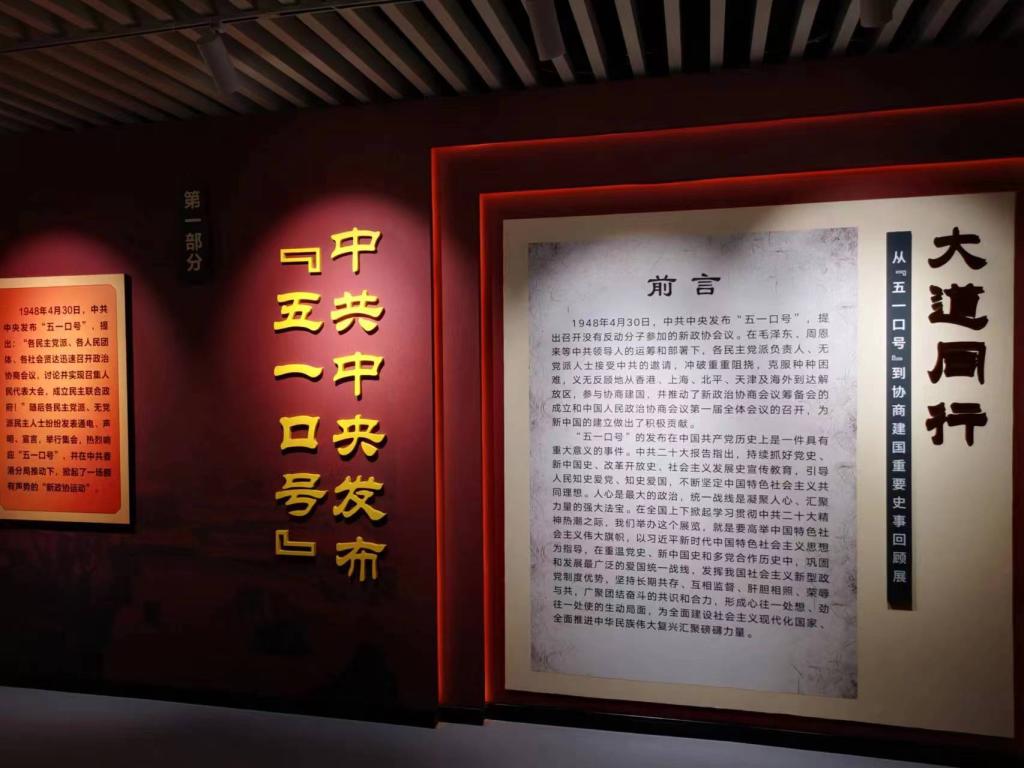 大道同行
从『五一口号』到协商建国重要史事回顾展
前言
1948年4月30日，中共中央发布“五一口号”，提
出召开没有反动分子参加的新政协会议。在毛泽东、周恩
来等中共领导人的运筹和部署下，各民主党派负责人、无
党派人士接受中共的邀请，冲破重重阻挠，克服种种困
难，义无反顾地从香港、上海、北平、天津及海外到达解
放区，参与协商建国，并推动了新政治协商会议筹备会的
成立和中国人民政治协商会议第一届全体会议的召开，为
新中国的建立做出了积极贡献。
“五一口号”的发布在中国共产党历史上是一件具有
重大意义的事件。中共二十大报告指出，持续抓好党史、
新中国史、改革开放史、社会主义发展史宣传教育，引导
人民知史爱党、知史爱国，不断坚定中国特色社会主义共
同理想。人心是最大的政治，统一战线是凝聚人心、汇聚
力量的强大法宝。在全国上下掀起学习贯彻中共二十大精
神热潮之际，我们举办这个展览，就是要高举中国特色社
会主义伟大旗帜，以习近平新时代中国特色社会主义思想
为指导，在重温党史、新中国史和多党合作历史中，巩固
和发展最广泛的爱国统一战线，发挥我国社会主义新型政
党制度优势，坚持长期共存、互相监督、肝胆相照、荣辱
与共，广聚团结奋斗的共识和合力，形成心往一处想、劲
往一处使的生动局面，为全面建设社会主义现代化国家、
全面推进中华民族伟大复兴汇聚磅礴力量。
中共中央发布
『五一口号』
第一部分
1948年4月30日，中共
中央发布“五一口号”，提
出：“各民主党派、各人民团
体、各社会贤达迅速召开政治
协商会议，讨论并实现召集人
民代表大会，成立民主联合政
府！”随后各民主党派、无党
派民主人士纷纷发表通电、声
明、宣言，举行集会，热烈响
应“五一口号”，并在中共香
港分局推动下，掀起了一场颇
有声势的“新政协运动”。